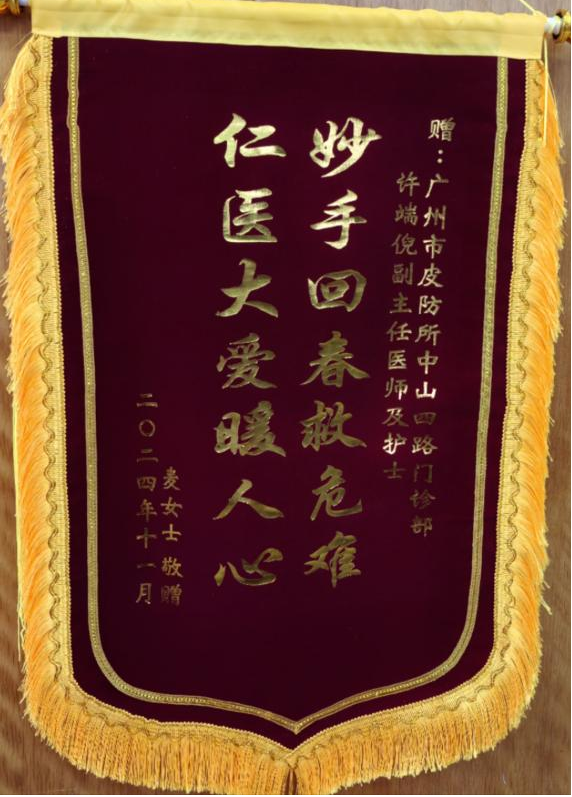 赠：广州市皮防所中山四路门诊部
许端倪副主任医师及护士
妙手回春救危难
仁医大爱暖人心
麦女士 敬赠
二〇二四年十一月